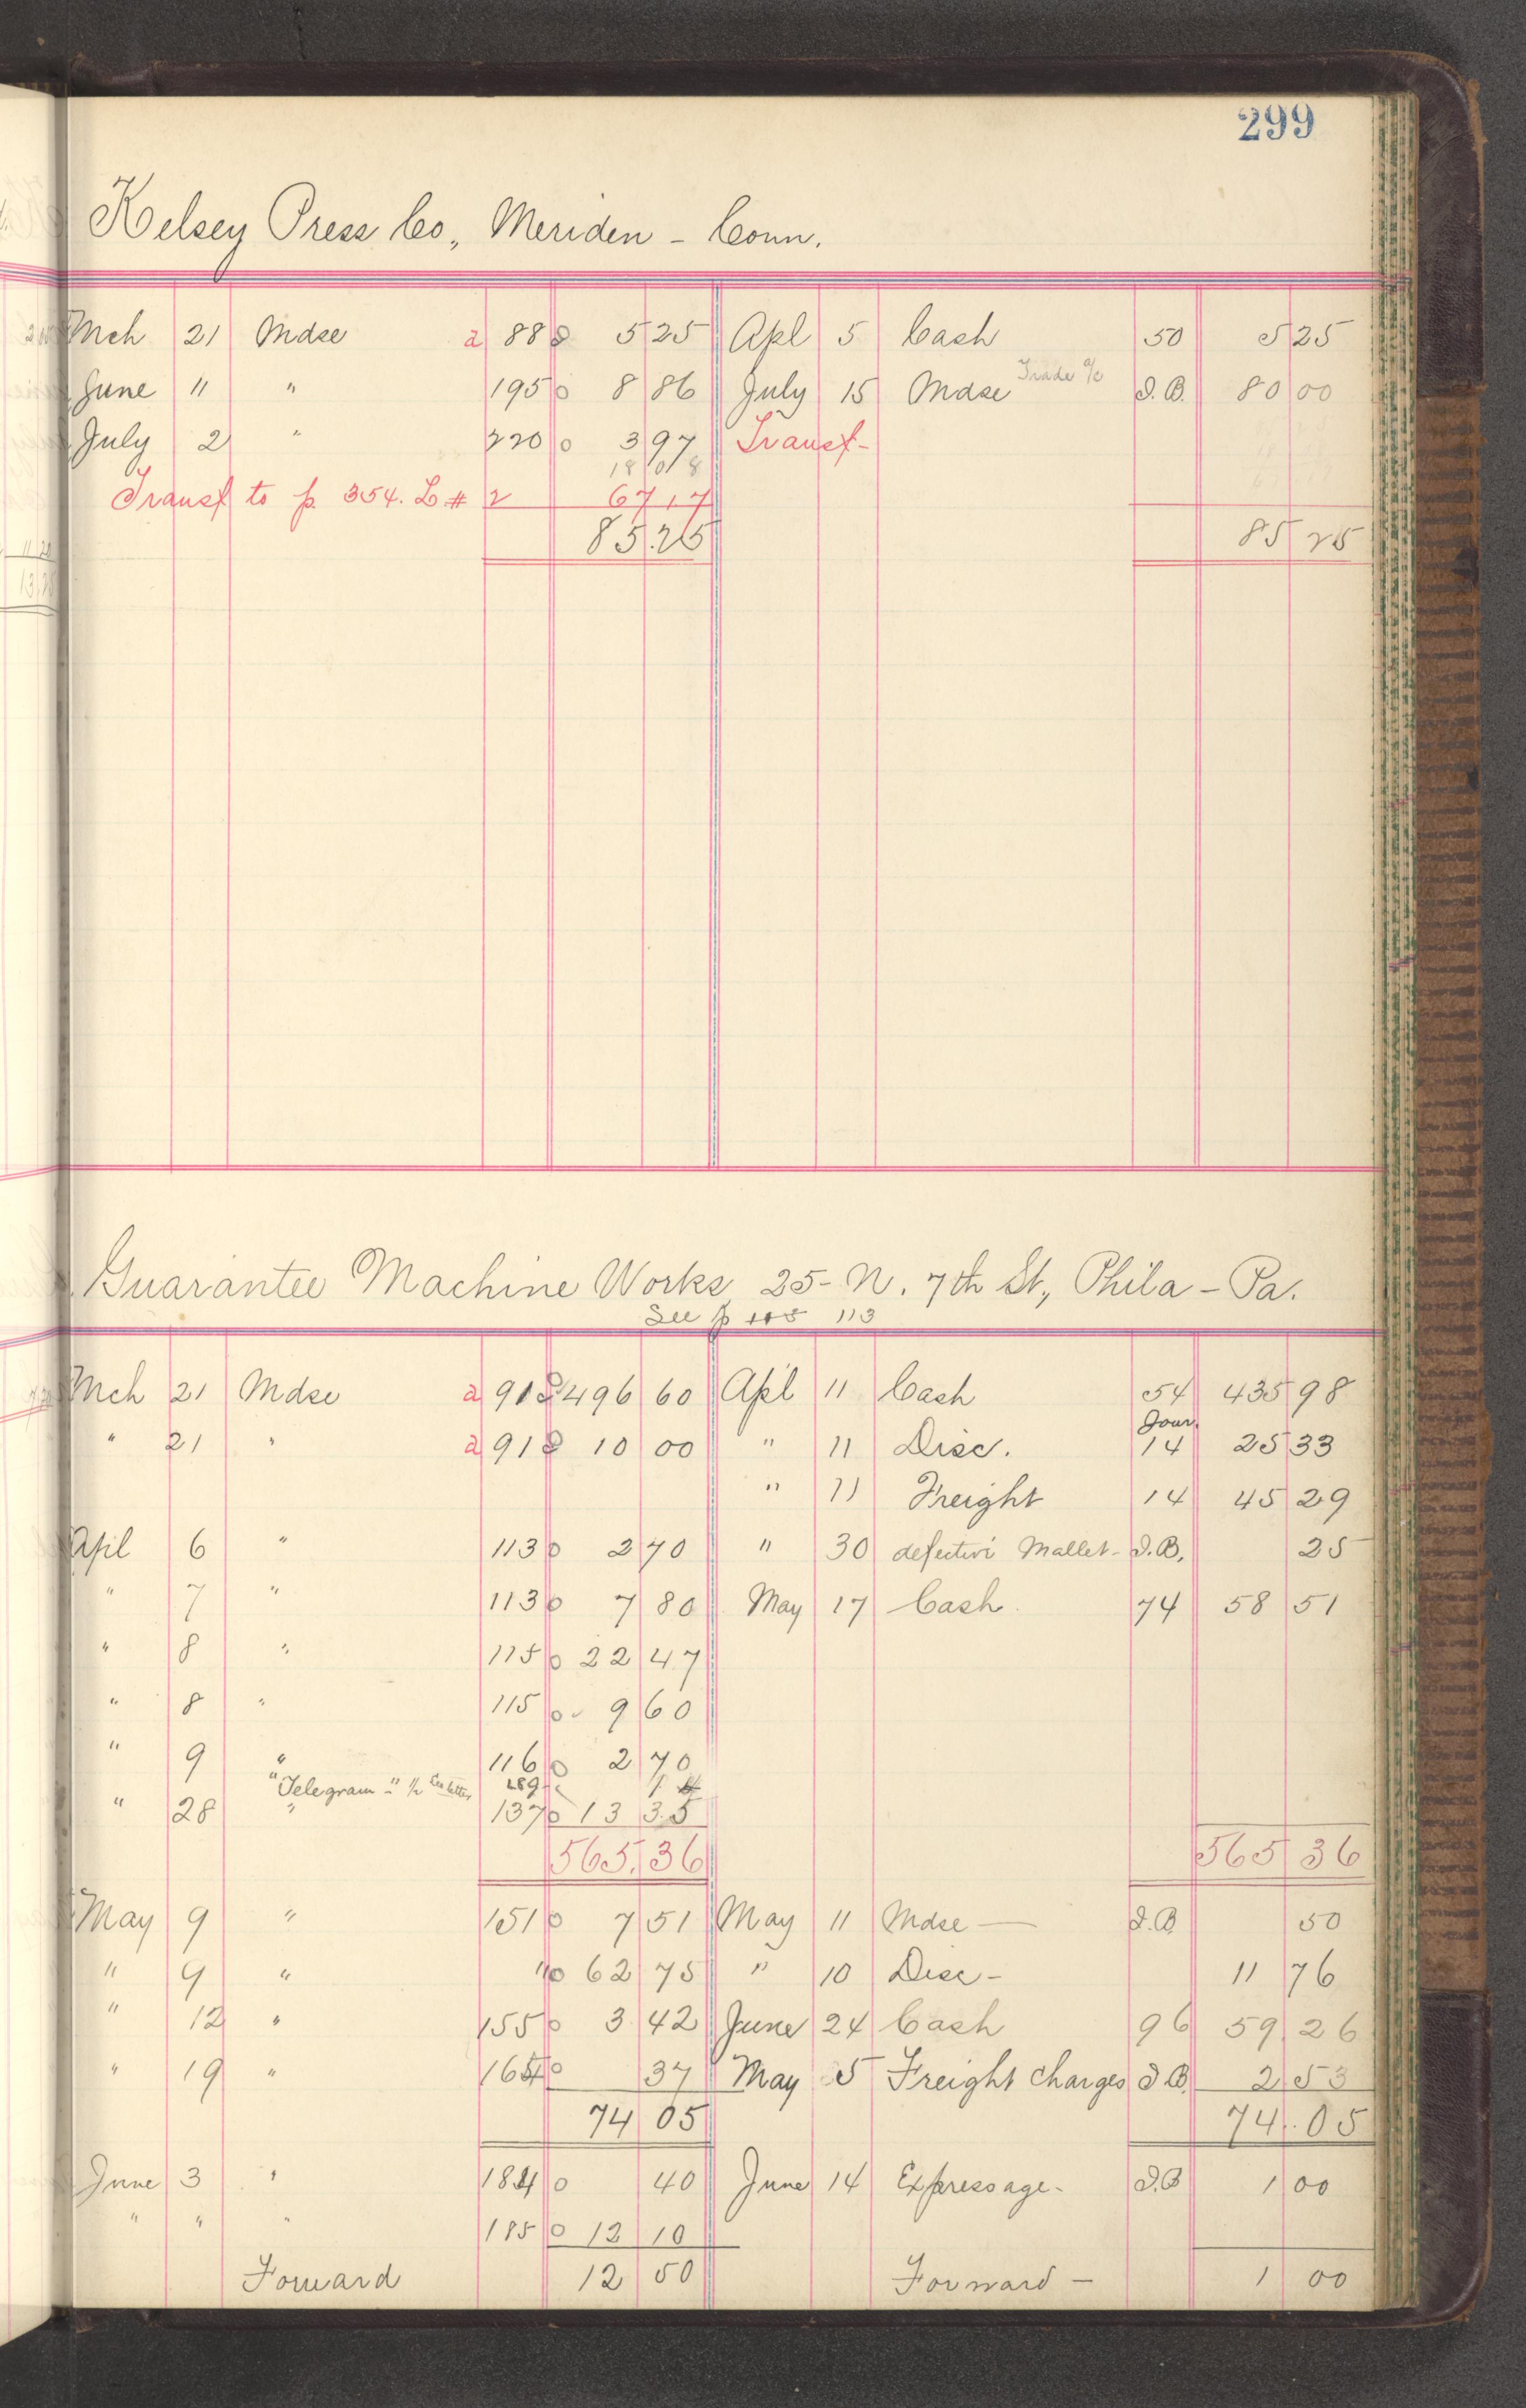 299
Kelsey Press Co., Meriden - Conn.
Mch 21 Mdse a 88 5 25 Apl 5 Cash 50 5 25
June 11 " 195 8 86 July 15 Mdse Trade a/c J.B. 80 00
July 2 " 220 3 97 Transf-
18 08
Transf to p. 354. L # 2 67 17
85.25 85 25
Guarantee Machine Works 25- N. 7th St., Phila - Pa.
See p 115 113
Mch 21 Mdse a 91 496 60 Apl 11 Cash 54 435 98
" 21 " a 91 10 00 " 11 Disc. Jour. 14 25 33
" 11 Freight 14 45 29
Apl 6 " 113 2 70 " 30 defective Mallet- J.B. 25
" 7 " 113 7 80 May 17 Cash 74 58 51
" 8 " 115 22 47
" 8 " 115 9 60
" 9 " 116 2 70
"Telegram-" 1/2 See letter 189 14
" 28 " 137 13 35
565.36 565 36
May 9 " 151 7 51 May 11 Mdse — J.B. 50
" 9 " " 62 75 " 10 Disc - 11 76
" 12 " 155 3 42 June 24 Cash 96 59 26
" 19 " 164 37 May 5 Freight charges J.B. 2 53
74 05 74.05
June 3 " 184 40 June 14 Expressage- J.B 1 00
" " " 185 12 10
Forward 12 50 Forward - 1 00